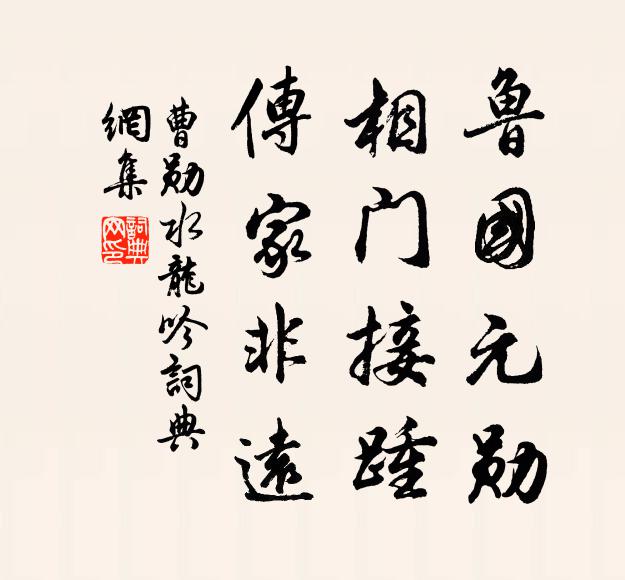 鲁國元勋
相门接踵
傳家非遠
曹勋水龍吟詞典
網集
詞典
网印